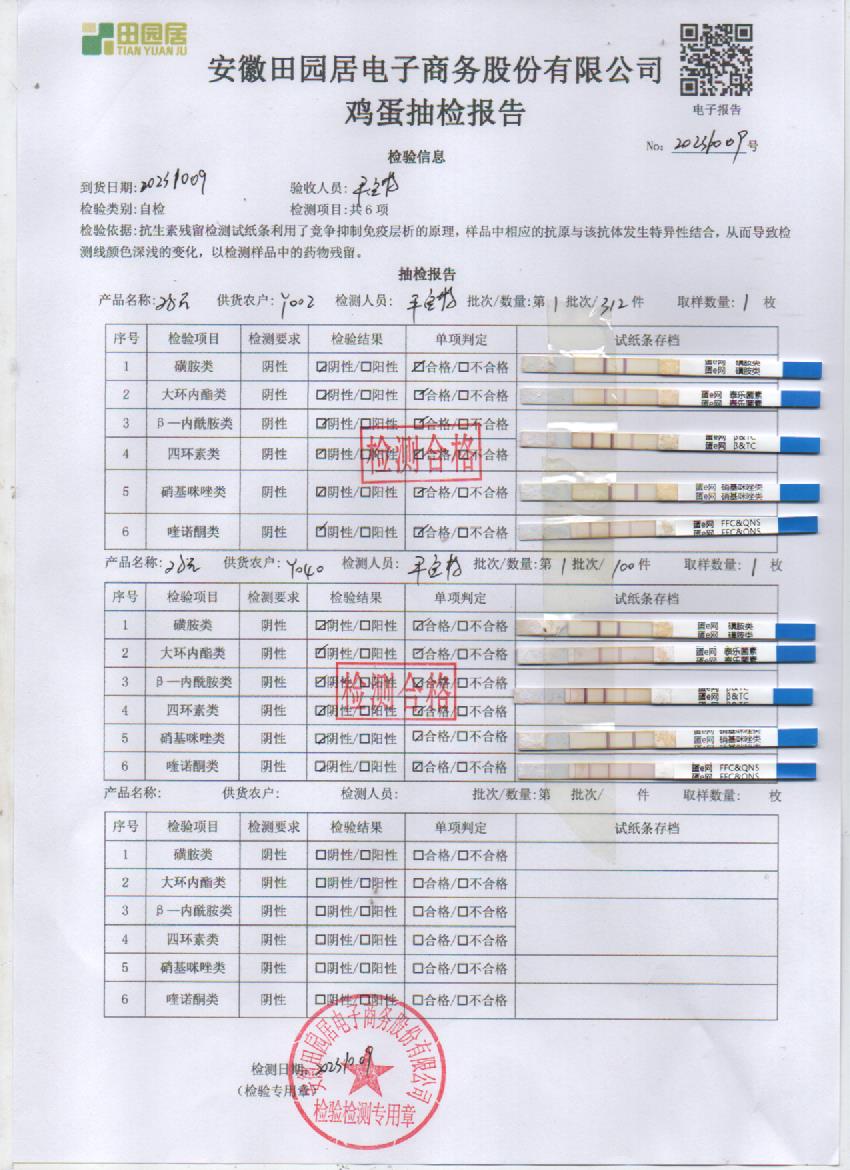 田园居
TIAN YUAN JU
安徽田园居电子商务股份有限公司
鸡蛋抽检报告
电子报告
No: 20251009号
检验信息
到货日期:20251009 验收人员:
检验类别:自检 检测项目:共6项
检验依据:抗生素残留检测试纸条利用了竞争抑制免疫层析的原理,样品中相应的抗原与该抗体发生特异性结合,从而导致检
测线颜色深浅的变化,以检测样品中的药物残留。
抽检报告
产品名称: 供货农户:Y002 检测人员: 批次/数量:第1批次/312件 取样数量:1枚
序号 检验项目 检测要求 检验结果 单项判定 试纸条存档
1 磺胺类 阴性 ☑阴性/□阳性 ☑合格/□不合格 蛋e网 磺胺类
2 大环内酯类 阴性 ☑阴性/□阳性 ☑合格/□不合格 蛋e网 泰乐菌素
3 β—内酰胺类 阴性 ☑阴性/□阳性 ☑合格/□不合格 蛋e网 β&TC
4 四环素类 阴性 ☑阴性/□阳性 ☑合格/□不合格
检测合格
5 硝基咪唑类 阴性 ☑阴性/□阳性 ☑合格/□不合格 蛋e网 硝基咪唑类
6 喹诺酮类 阴性 ☑阴性/□阳性 ☑合格/□不合格 蛋e网 FFC&QNS
产品名称: 供货农户:Y040 检测人员: 批次/数量:第1批次/100件 取样数量:1枚
序号 检验项目 检测要求 检验结果 单项判定 试纸条存档
1 磺胺类 阴性 ☑阴性/□阳性 ☑合格/□不合格 蛋e网 磺胺类
2 大环内酯类 阴性 ☑阴性/□阳性 ☑合格/□不合格 蛋e网 泰乐菌素
3 β—内酰胺类 阴性 ☑阴性/□阳性 ☑合格/□不合格 蛋e网 β&TC
检测合格
4 四环素类 阴性 ☑阴性/□阳性 ☑合格/□不合格
5 硝基咪唑类 阴性 ☑阴性/□阳性 ☑合格/□不合格 蛋e网 硝基咪唑类
6 喹诺酮类 阴性 ☑阴性/□阳性 ☑合格/□不合格 蛋e网 FFC&QNS
产品名称: 供货农户: 检测人员: 批次/数量:第 批次/ 件 取样数量: 枚
序号 检验项目 检测要求 检验结果 单项判定 试纸条存档
1 磺胺类 阴性 □阴性/□阳性 □合格/□不合格
2 大环内酯类 阴性 □阴性/□阳性 □合格/□不合格
3 β—内酰胺类 阴性 □阴性/□阳性 □合格/□不合格
4 四环素类 阴性 □阴性/□阳性 □合格/□不合格
5 硝基咪唑类 阴性 □阴性/□阳性 □合格/□不合格
6 喹诺酮类 阴性 □阴性/□阳性 □合格/□不合格
安徽田园居电子商务股份有限公司
检测日期:20251009
(检验专用章)
检验检测专用章